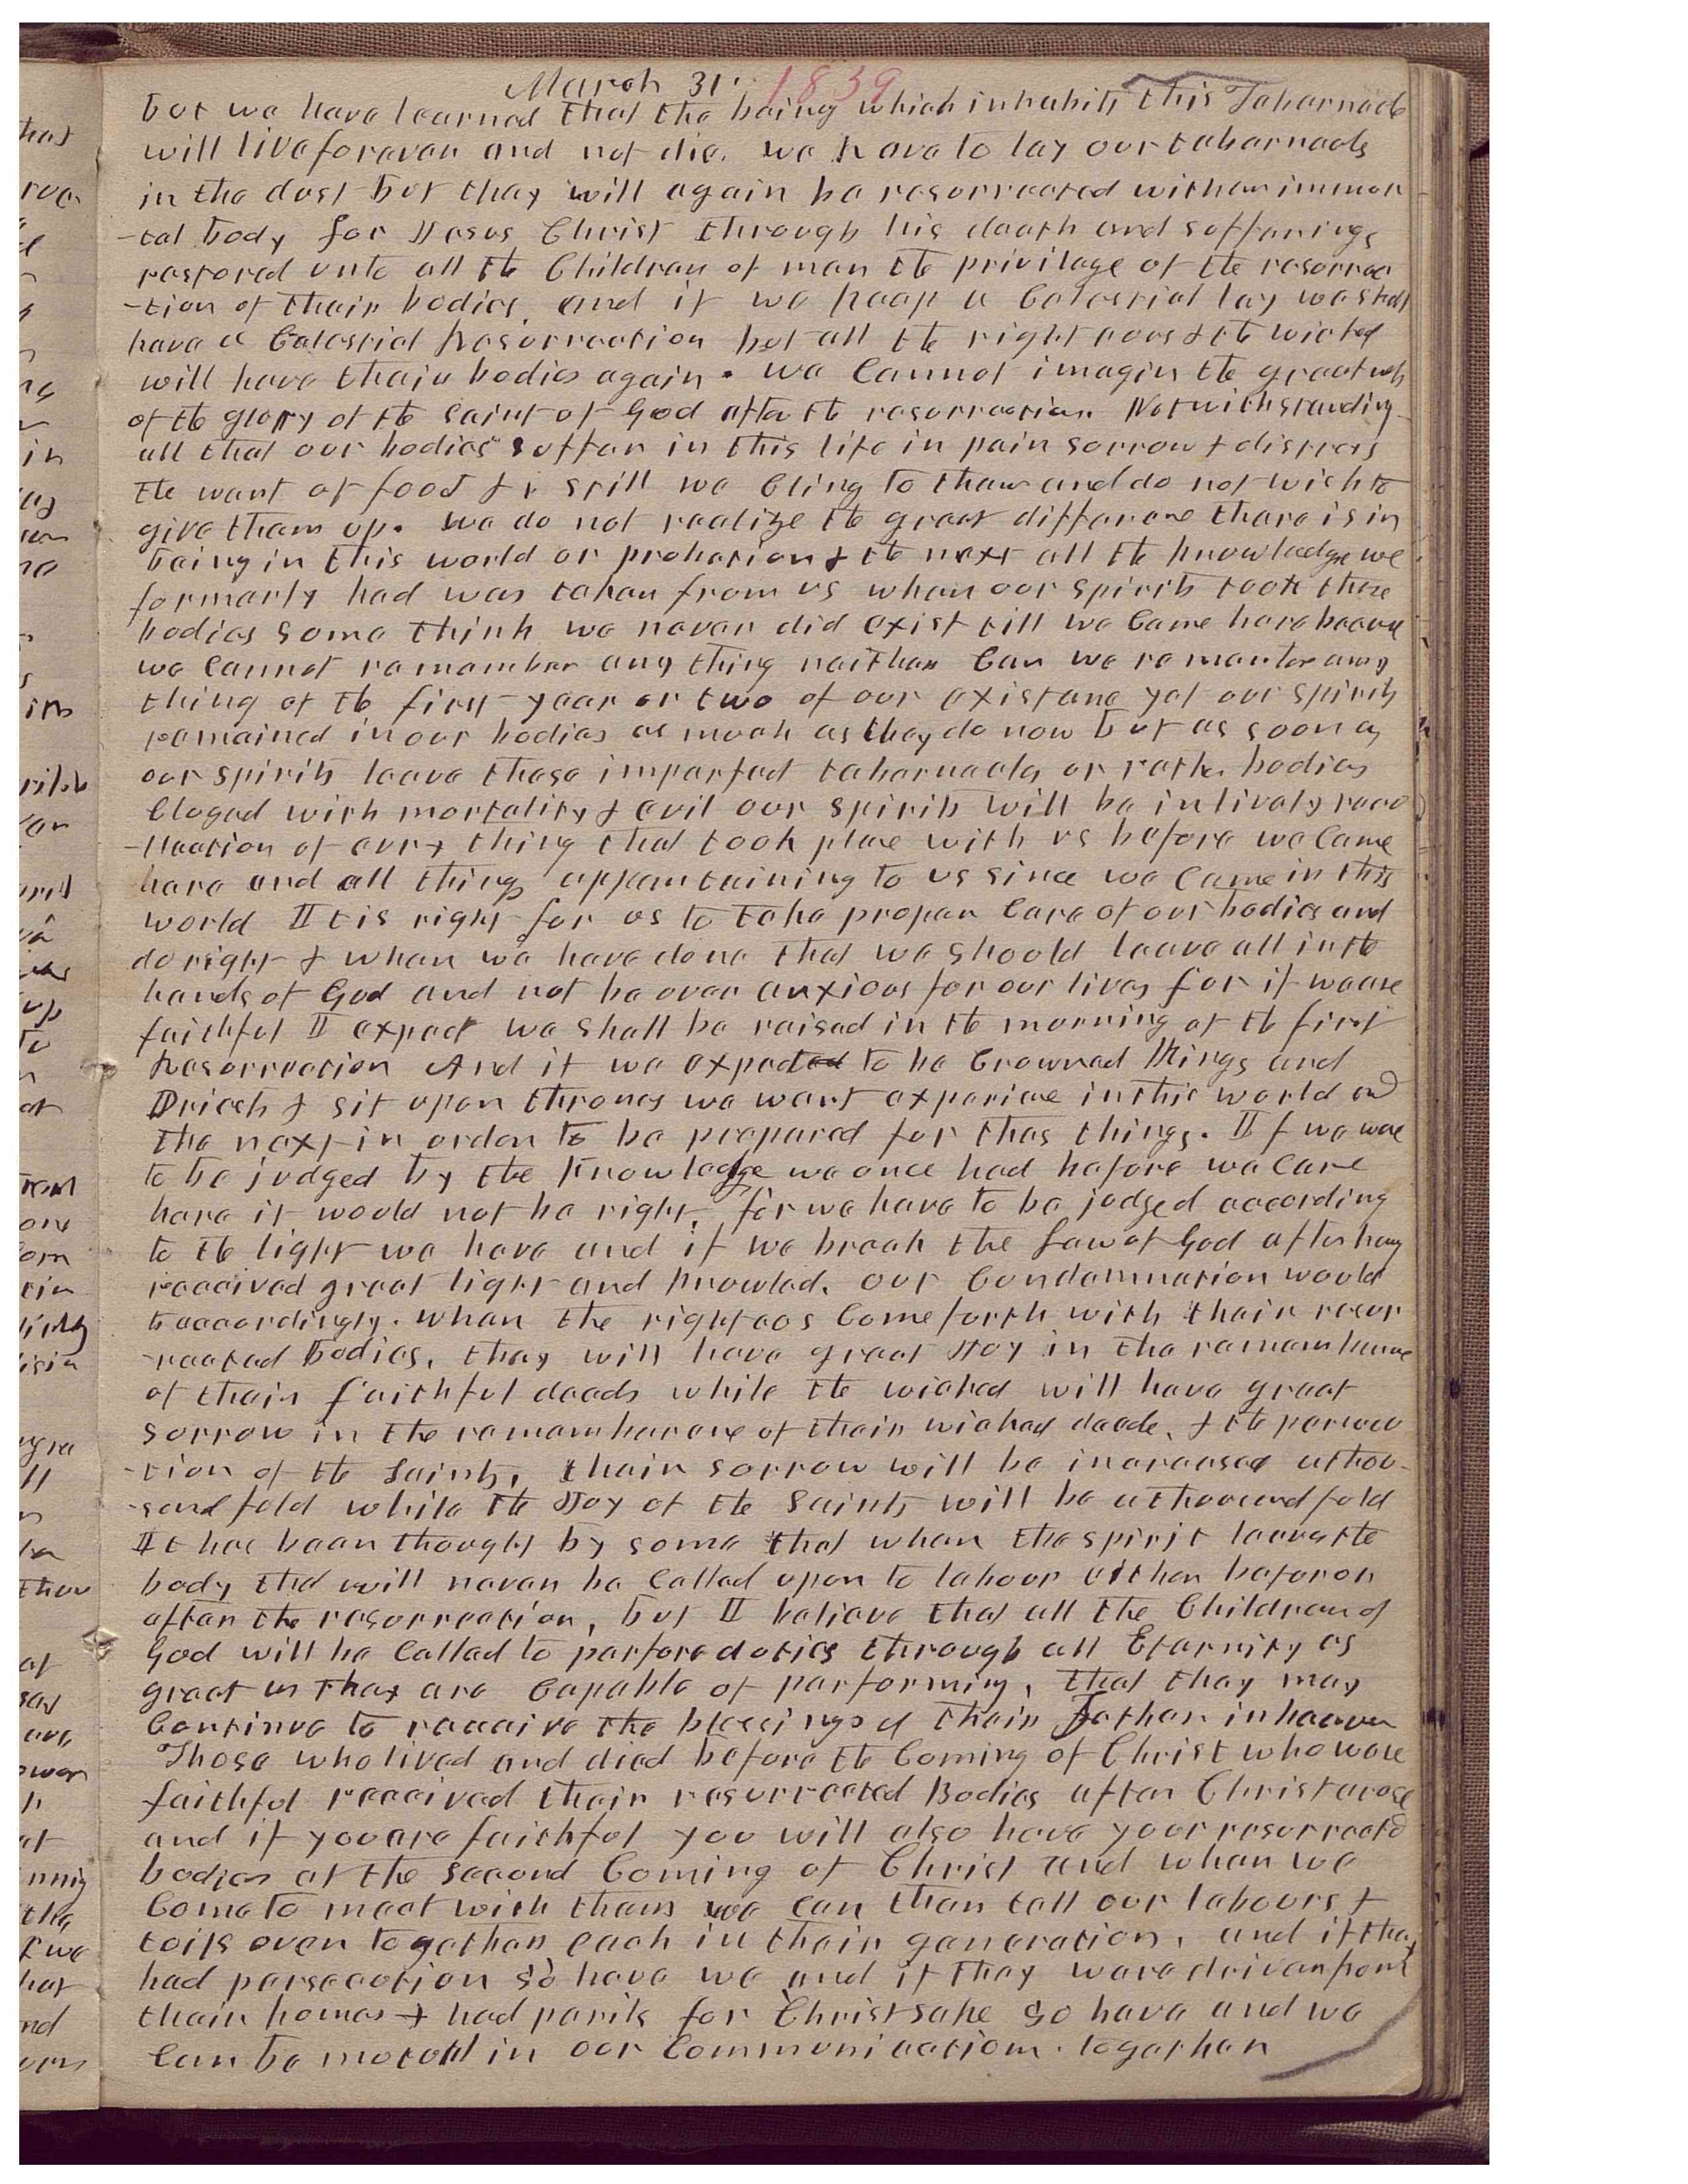 March 31. 1839
but we have learned that the being which inhabits this Tabernacle
will live forever and not die. we have to lay our tabernacle
in the dust but they will again be resurrected with an immor
-tal body for Jesus Christ through his death and sufferings
restored unto all the Children of man the privilage of the resurrec
-tion of their bodies. and if we keep a Celestial law we shall
have a Celestial Resurrection but all the righteous & the wicked
will have their bodies again. we Cannot imagin the greatness
of the glory of the Saints of God after the resurrection. Notwithstanding
all that our bodies suffer in this life in pain sorrow & distress
the want of food & still we Cling to them and do not wish to
give them up. we do not realize the great difference there is in
being in this world or probation & the next all the knowledge we
formerly had was taken from us when our spirits took these
bodies some think we never did exist till we Came here because
we Cannot remember any thing neither Can we remember any
thing of the first year or two of our existance yet our spirits
remained in our bodies as much as they do now but as soon as
our spirits leave these imperfect tabernacles or rather bodies
Cloged with mortality & evil our spirits will be in lively reco
-llection of evry thing that took place with us before we Came
here and all things appertaining to us since we Came in this
world It is right for us to take proper Care of our bodies and
do right & when we have done that we should leave all in the
hands of God and not be over anxious for our lives for if we are
faithful I expect we shall be raised in the morning of the first
Resurrection And if we expected to be Crowned Kings and
Priests & sit upon thrones we want experience in this world and
the next in order to be prepared for thes things. If we were
to be judged by the Knowledge we once had before we Came
here it would not be right, for we have to be judged according
to the light we have and if we break the Law of God after having
received great light and knowled. our Condemnation would
be accordingly. when the righteous Come forth with their resur
-rected bodies, they will have great Joy in the remembrance
of their faithful deeds while the wicked will have great
sorrow in the remembarance of their wicked deeds, & the persecu
-tion of the Saints, their sorrow will be increased a thou-
-sand fold while the Joy of the Saints will be a thousand fold
It has been thought by some that when the spirit leaves the
body that will never be Called upon to labour either before or
after the resurrection, but I believe that all the Children of
God will be Called to perfore duties through all Eternity as
great as they are Capable of performing, that they may
Continue to receive the blessings of their Father in heaven
Those who lived and died before the Coming of Christ who were
faithful received their resurrected Bodies after Christ arose
and if you are faithful you will also have your resurrected
bodies at the second Coming of Christ and when we
Come to meet with them we can then tell our labours &
toils over together each in their generation, and if they
had persecution so have we and if they were driven from
their homes & had perils for Christ sake so have and we
Can be mutual in our Communication together